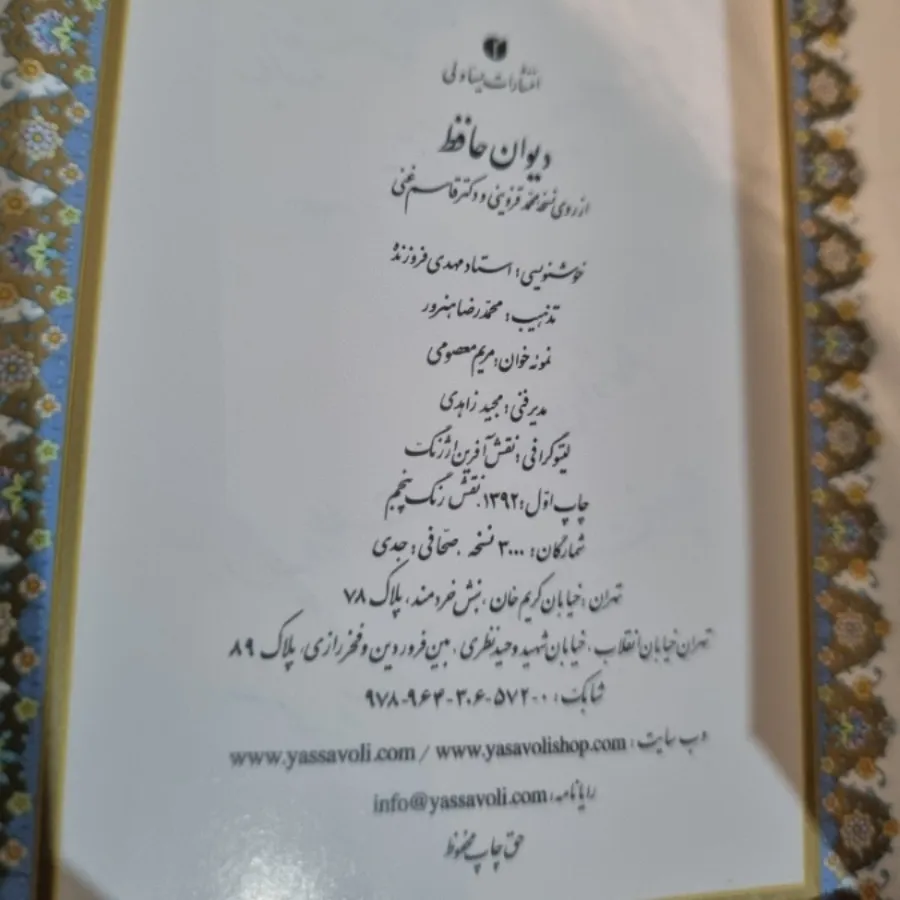 انتشارات یساولی
دیوان حافظ
از روی نسخه محمد قزوینی و دکتر قاسم غنی
خوشنویسی: استاد مهدی فروزنده
تذهیب: محمّدرضا هنرور
نمونه خوان: مریم معصومی
مدیر فنی: مجید زاهدی
لیتوگرافی: نقش آفرین ارژنگ
چاپ اوّل: ۱۳۹۲. نقش رنگ پنجم
شمارگان: ۳۰۰۰ نسخه. صحّافی: جدی
تهران: خیابان کریم خان، نبش خردمند، پلاک ۷۸
تهران خیابان انقلاب، خیابان شهید وحید نظری، بین فروردین و فخر رازی، پلاک ۸۹
شابک: ۰-۵۷۲-۳۰۶-۹۶۴-۹۷۸
وب سایت: www.yassavoli.com / www.yasavolishop.com
رایانامه: info@yassavoli.com
حق چاپ محفوظ